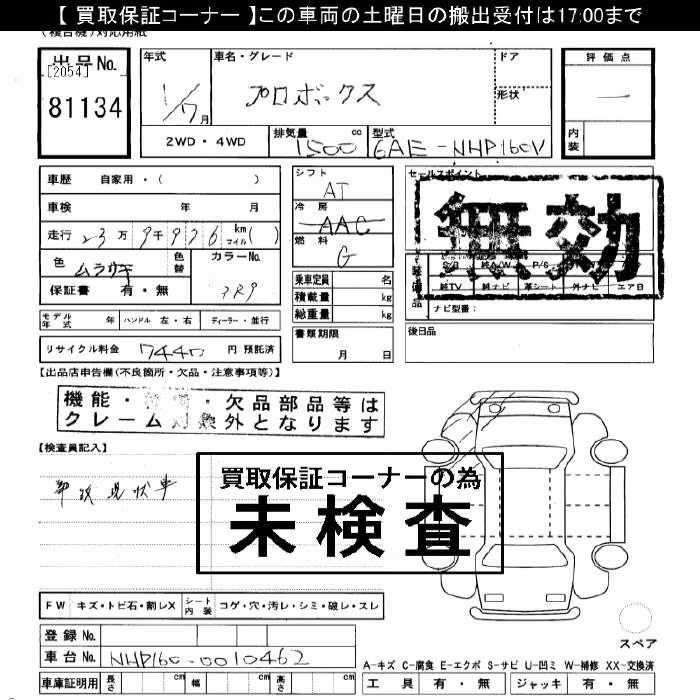 【 買取保証コーナー 】この車両の土曜日の搬出受付は17:00まで
(複合機)対応用紙
出品No.
[2054]
81134
年式
1/7月
車名・グレード
プロボックス
ドア
形状
評価点
一
内装
2WD・4WD
排気量 cc
1500
型式
6AE-NHP160V
車歴 自家用・( )
車検 年 月
走行 23万9千976 km マイル( )
色 ムラサキ 色替
カラーNo. 3R9
保証書 有・無
シフト
AT
冷房
AAC
燃料
G
乗車定員 名
積載量 kg
総重量 kg
セールスポイント
無効
装備品
S/R 純A/W P/S
純TV 純ナビ 革シート 外ナビ エアB
ナビ型番:
モデル年式 年 ハンドル 左・右 ディーラー・並行
リサイクル料金 7440 円 預託済
書類期限
月 日
後日品
【出品店申告欄(不良箇所・欠品・注意事項等)】
機能・ ・欠品部品等は
クレーム対象外となります
【検査員記入】
現状車
買取保証コーナーの為
未検査
FW キズ・トビ石・割レX シート内装 コゲ・穴・汚レ・シミ・破レ・スレ
登録 No.
車台 No. NHP160-0010462
車庫証明用 長さ cm 幅 cm 高さ cm
スペア
A-キズ C-腐食 E-エクボ S-サビ U-凹ミ W-補修 XX-交換済
工具 有・無 ジャッキ 有・無